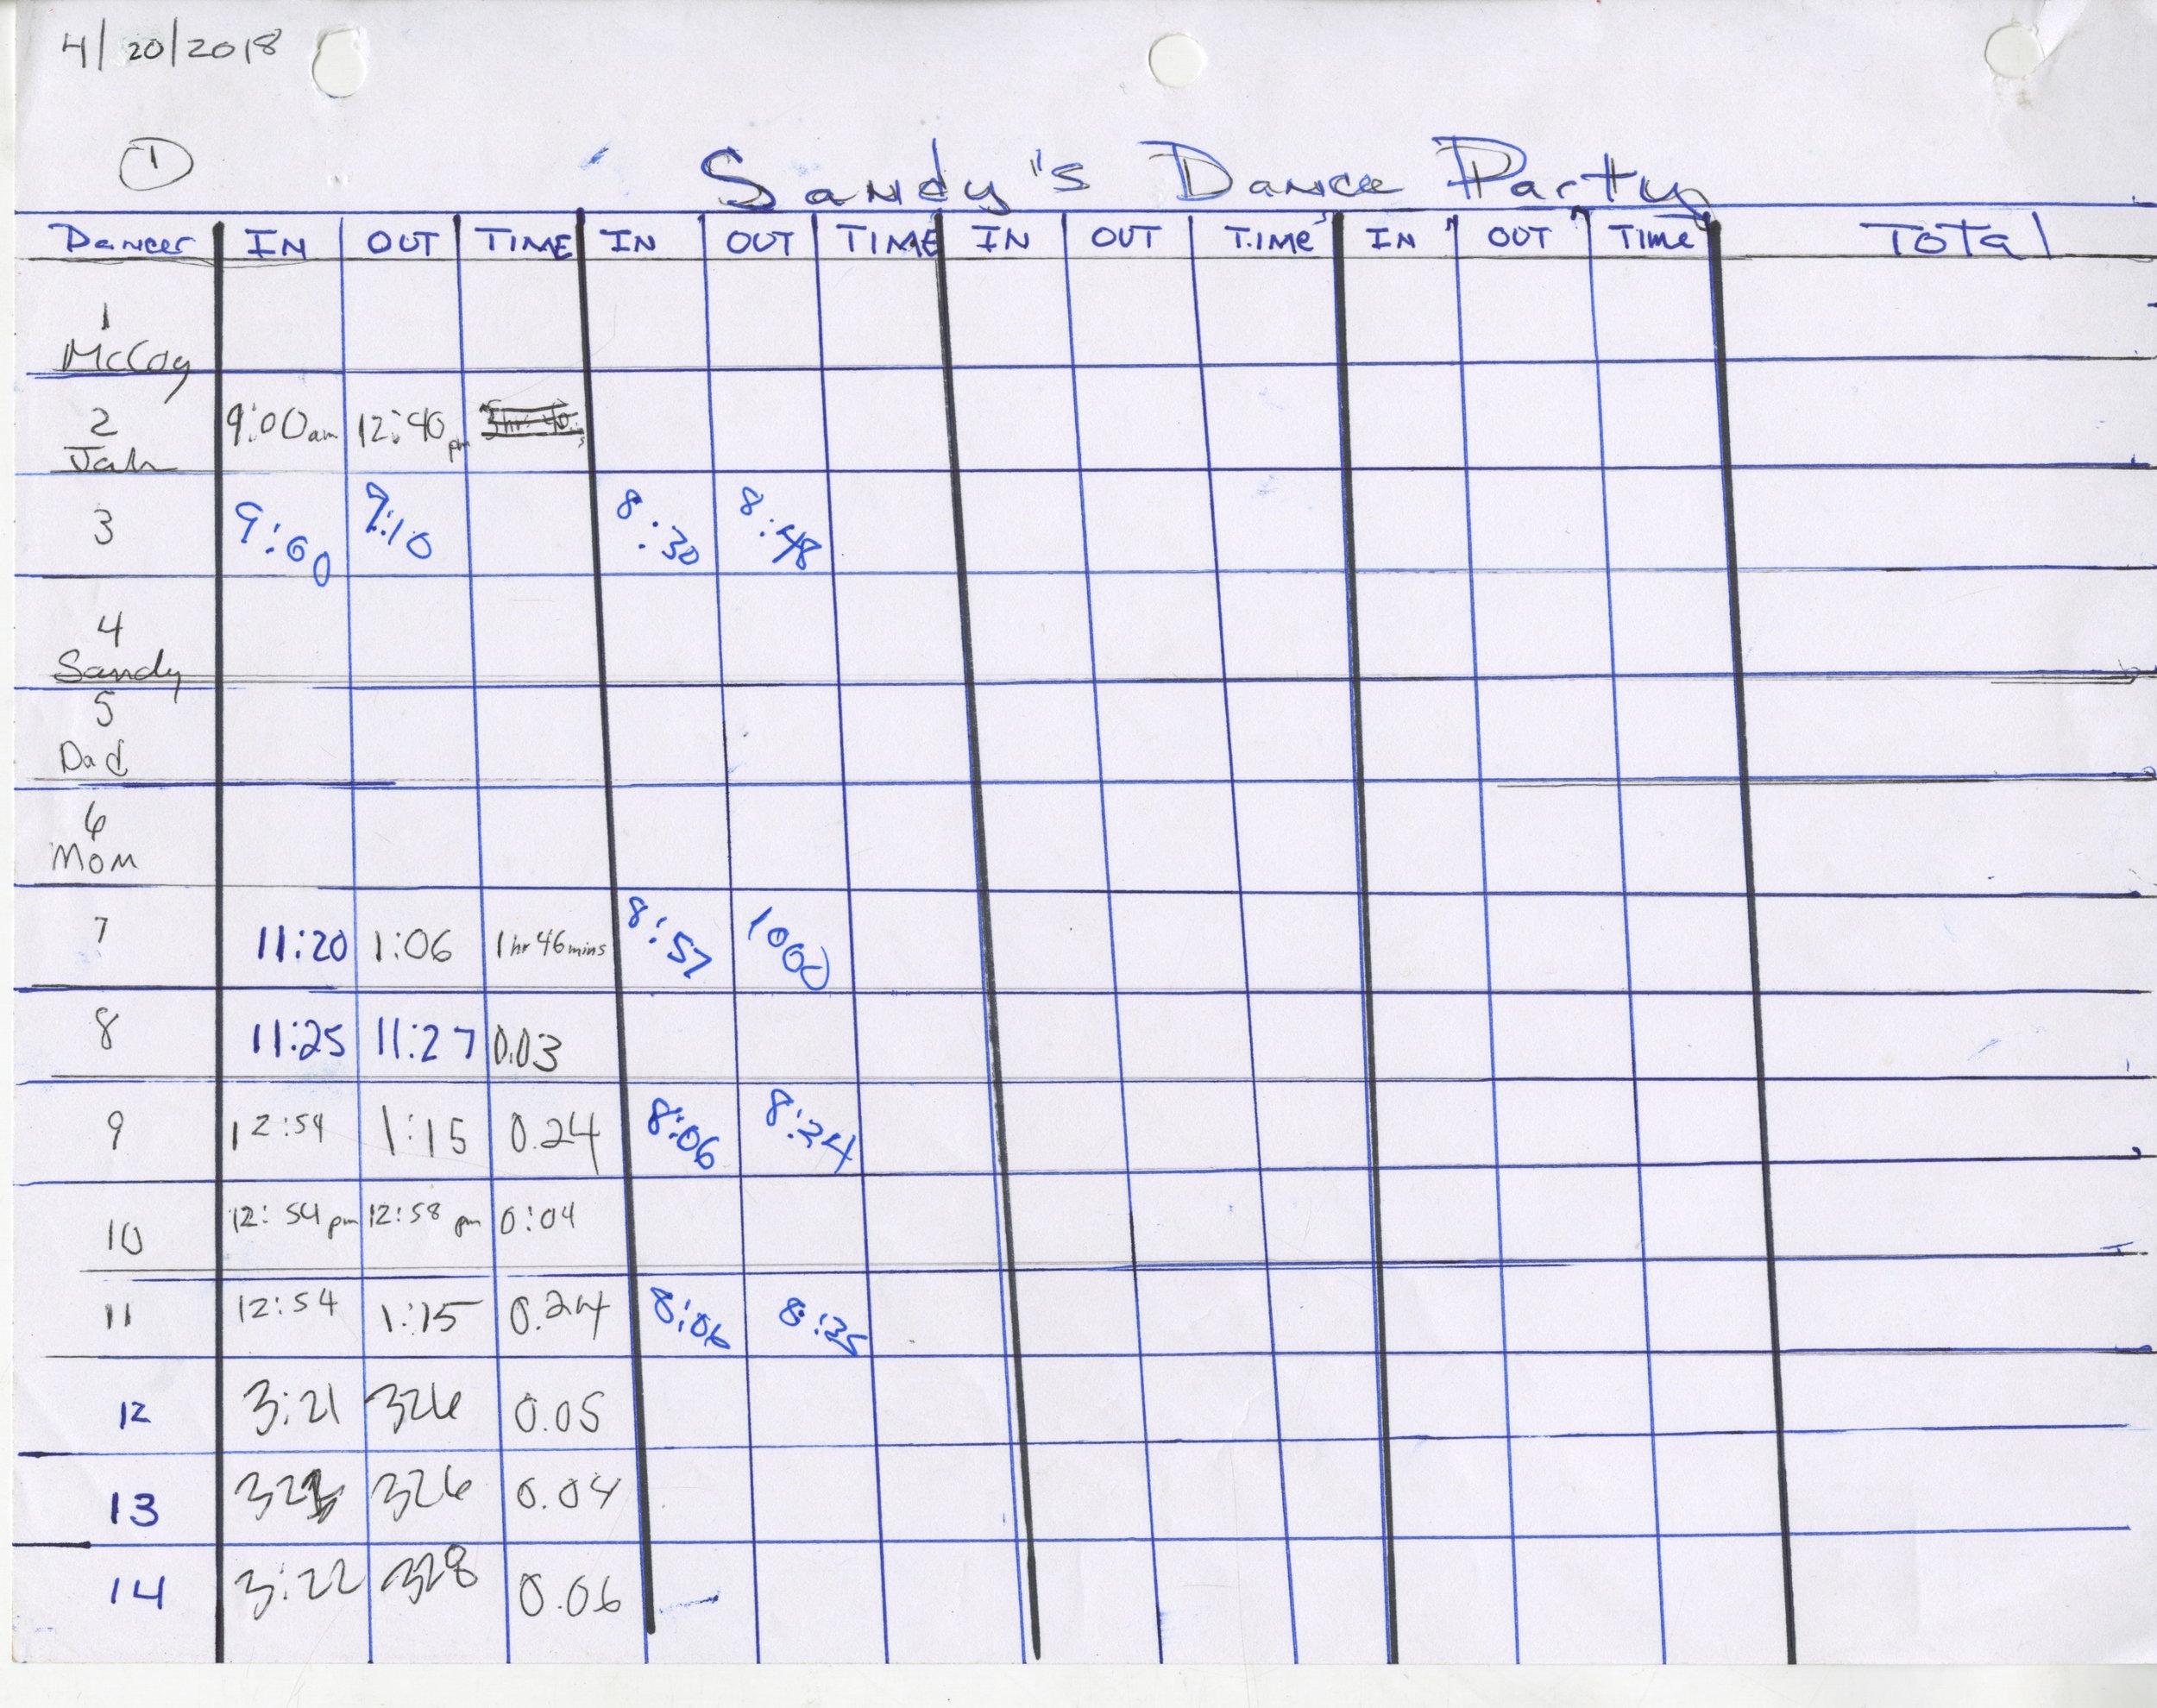 4/20/2018
1
Sandy's Dance Party
Dancer IN OUT TIME IN OUT TIME IN OUT TIME IN OUT TIME TOTAL
1
McCoy
2 9:00am 12:40pm
Jah
3 9:00 9:10 8:30 8:48
4
Sandy
5
Dad
6
Mom
7 11:20 1:06 1hr 46mins 8:57 1000
8 11:25 11:27 0.03
9 12:54 1:15 0.24 8:06 8:24
10 12:54pm 12:58 pm 0:04
11 12:54 1:15 0.24 8:06 8:35
12 3:21 326 0.05
13 326 0.04
14 3:22 328 0.06